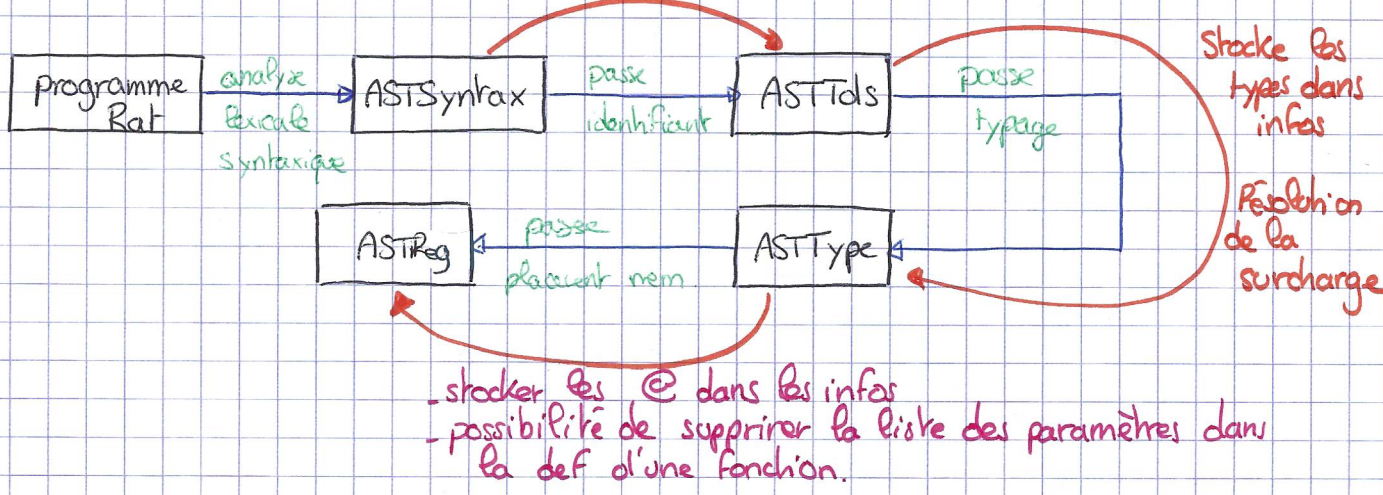 programme
Rat
analyse
lexicale
syntaxique
ASTSyntax
passe
identifiant
ASTTds
passe
typage
Stocke les
types dans
infos
Résolution
de la
surcharge
ASTType
passe
placement mem.
ASTReg
- stocker les @ dans les infos
- possibilité de supprirer la liste des paramètres dans
la def d'une fonction.